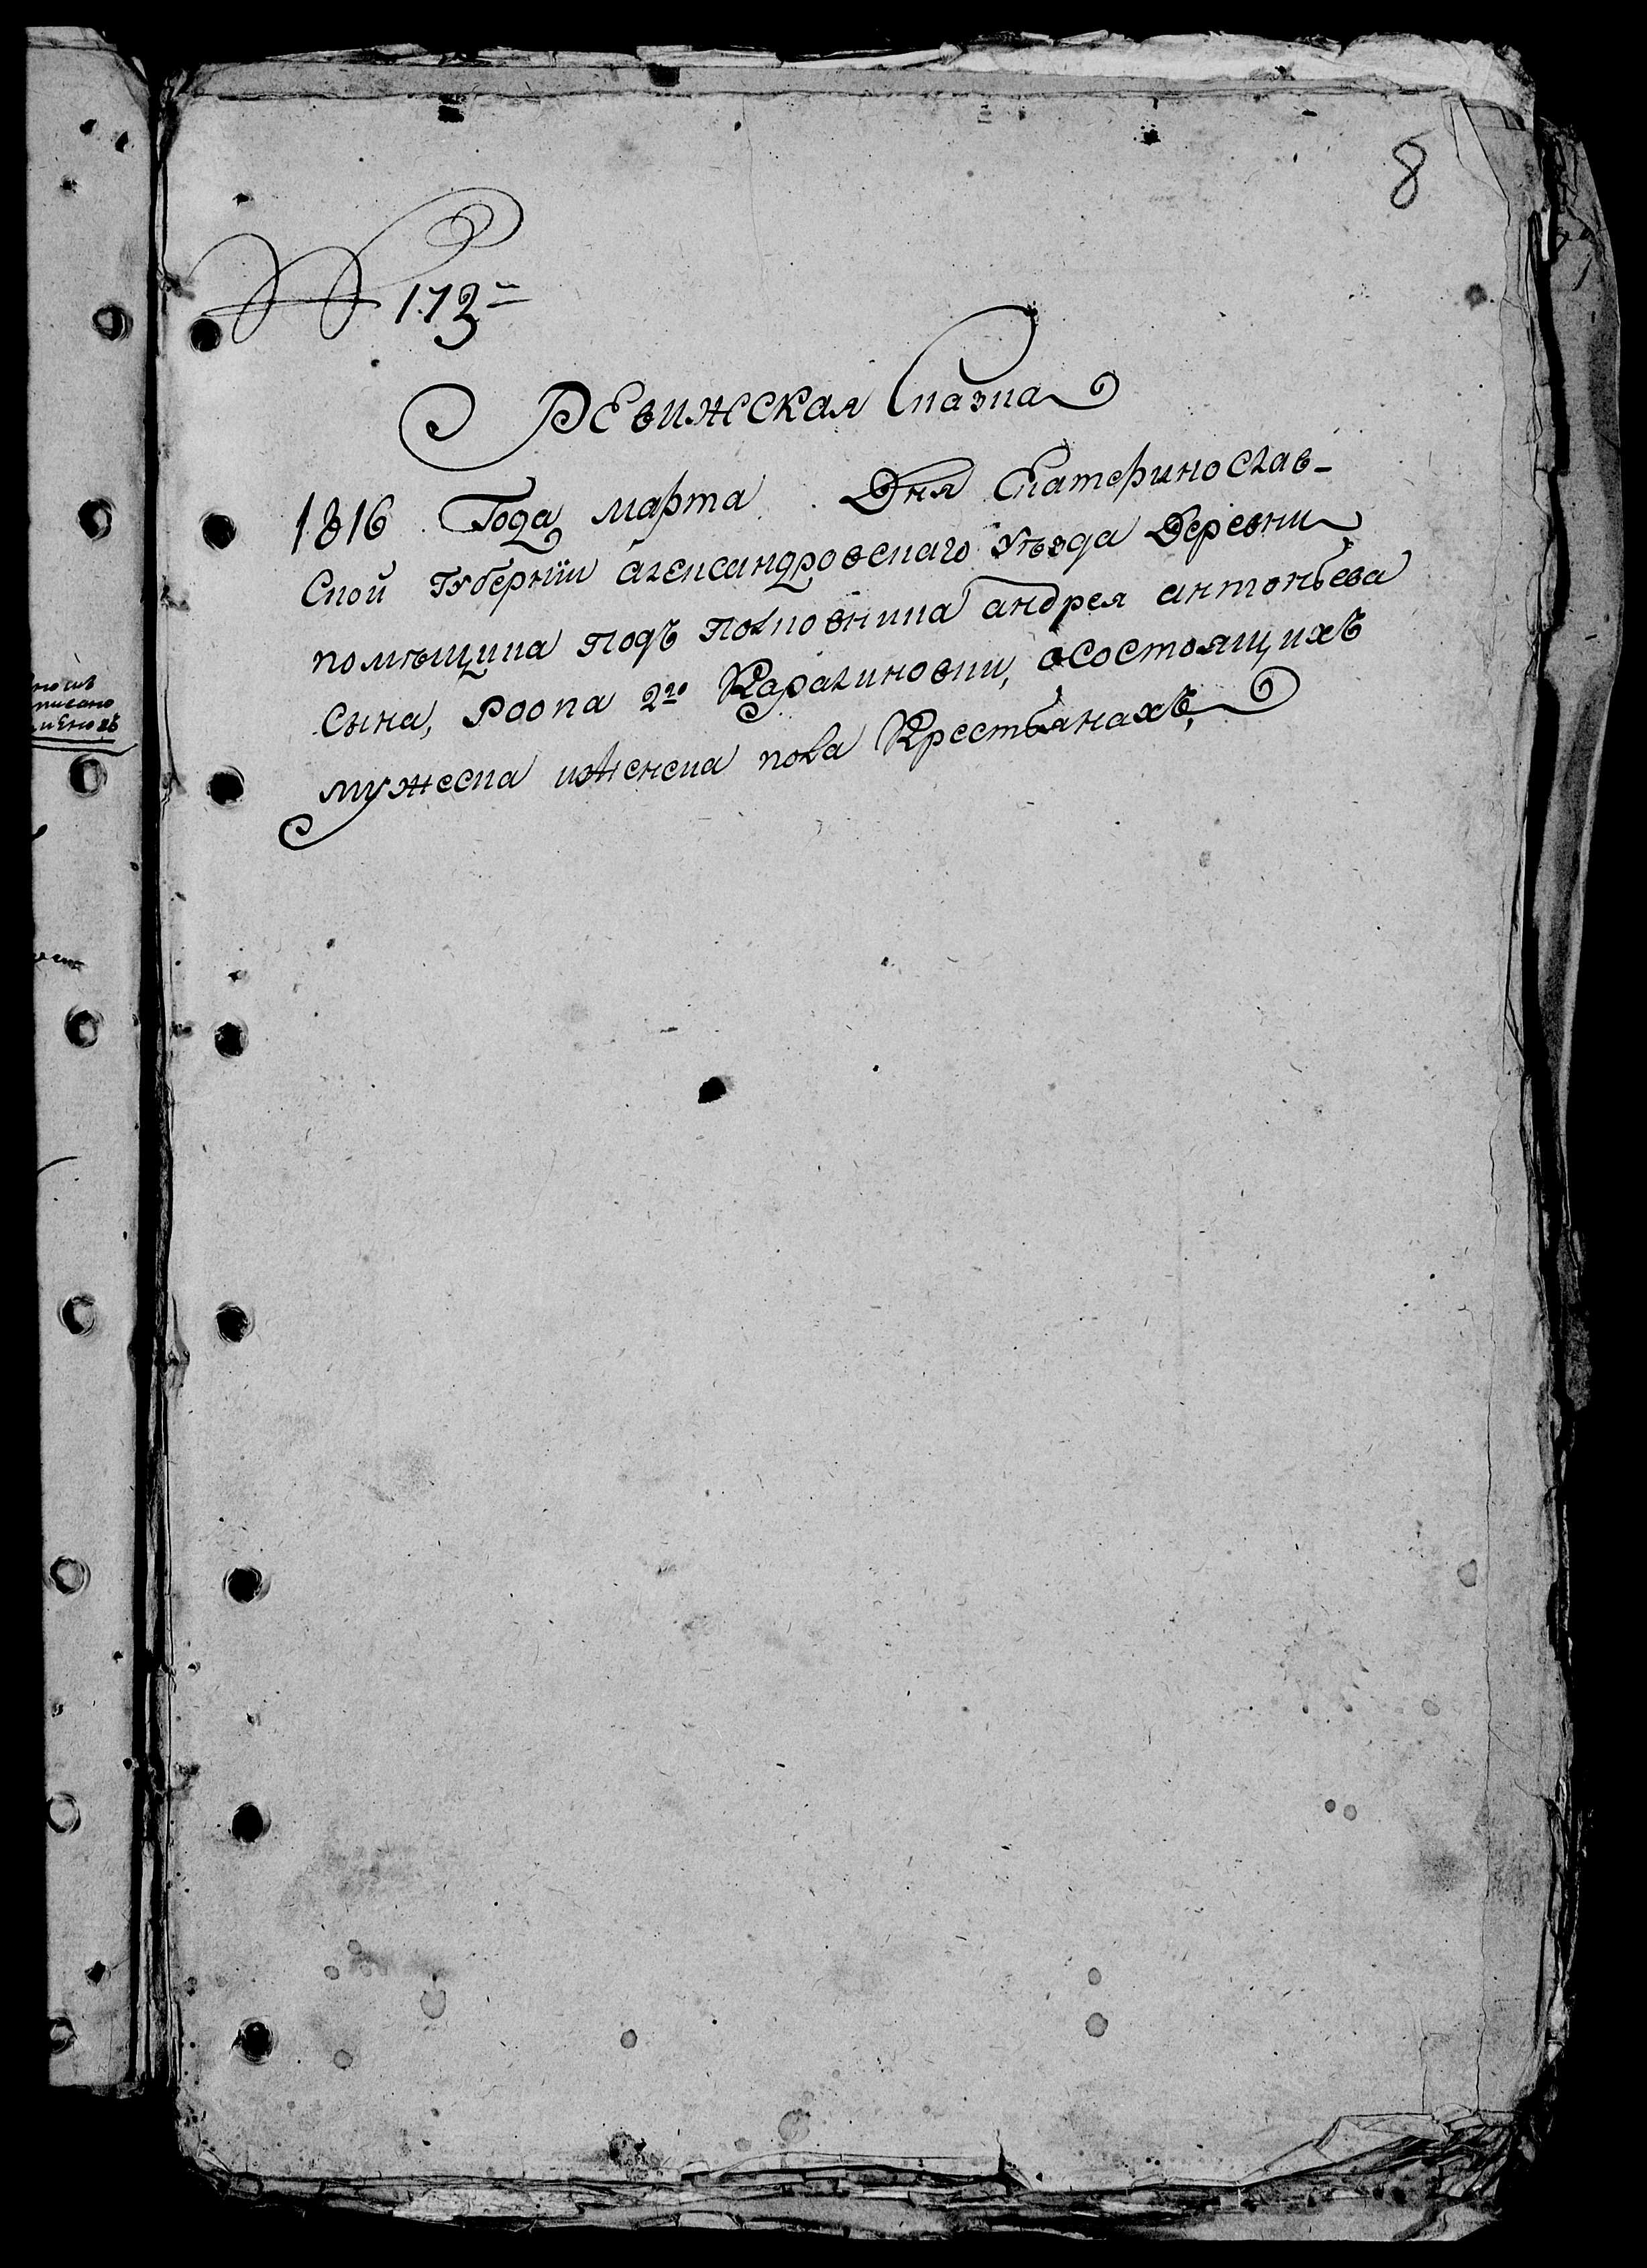 8
№ 173й
Ревижская Сказка
1816 Года марта Дня Екатеринослав-
ской Губернїи александровскаго Уѣзда Деревни
помѣщика подъ полковника андрея антоньева
сына, Роопа 2го Каралиновки, осостоящихъ
мужеска иженска пола Крестьянахъ,